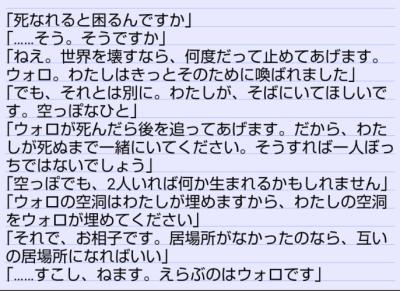 「死なれると困るんですか」
「……そう。そうですか」
「ねえ。世界を壊すなら、何度だって止めてあげます。
ウォロ。わたしはきっとそのために喚ばれました」
「でも、それとは別に。わたしが、そばにいてほしいで
す。空っぽなひと」
「ウォロが死んだら後を追ってあげます。だから、わた
しが死ぬまで一緒にいてください。そうすれば一人ぼっ
ちではないでしょう」
「空っぽでも、2人いれば何か生まれるかもしれません」
「ウォロの空洞はわたしが埋めますから、わたしの空洞
をウォロが埋めてください」
「それで、お相子です。居場所がなかったのなら、互い
の居場所になればいい」
「……すこし、ねます。えらぶのはウォロです」